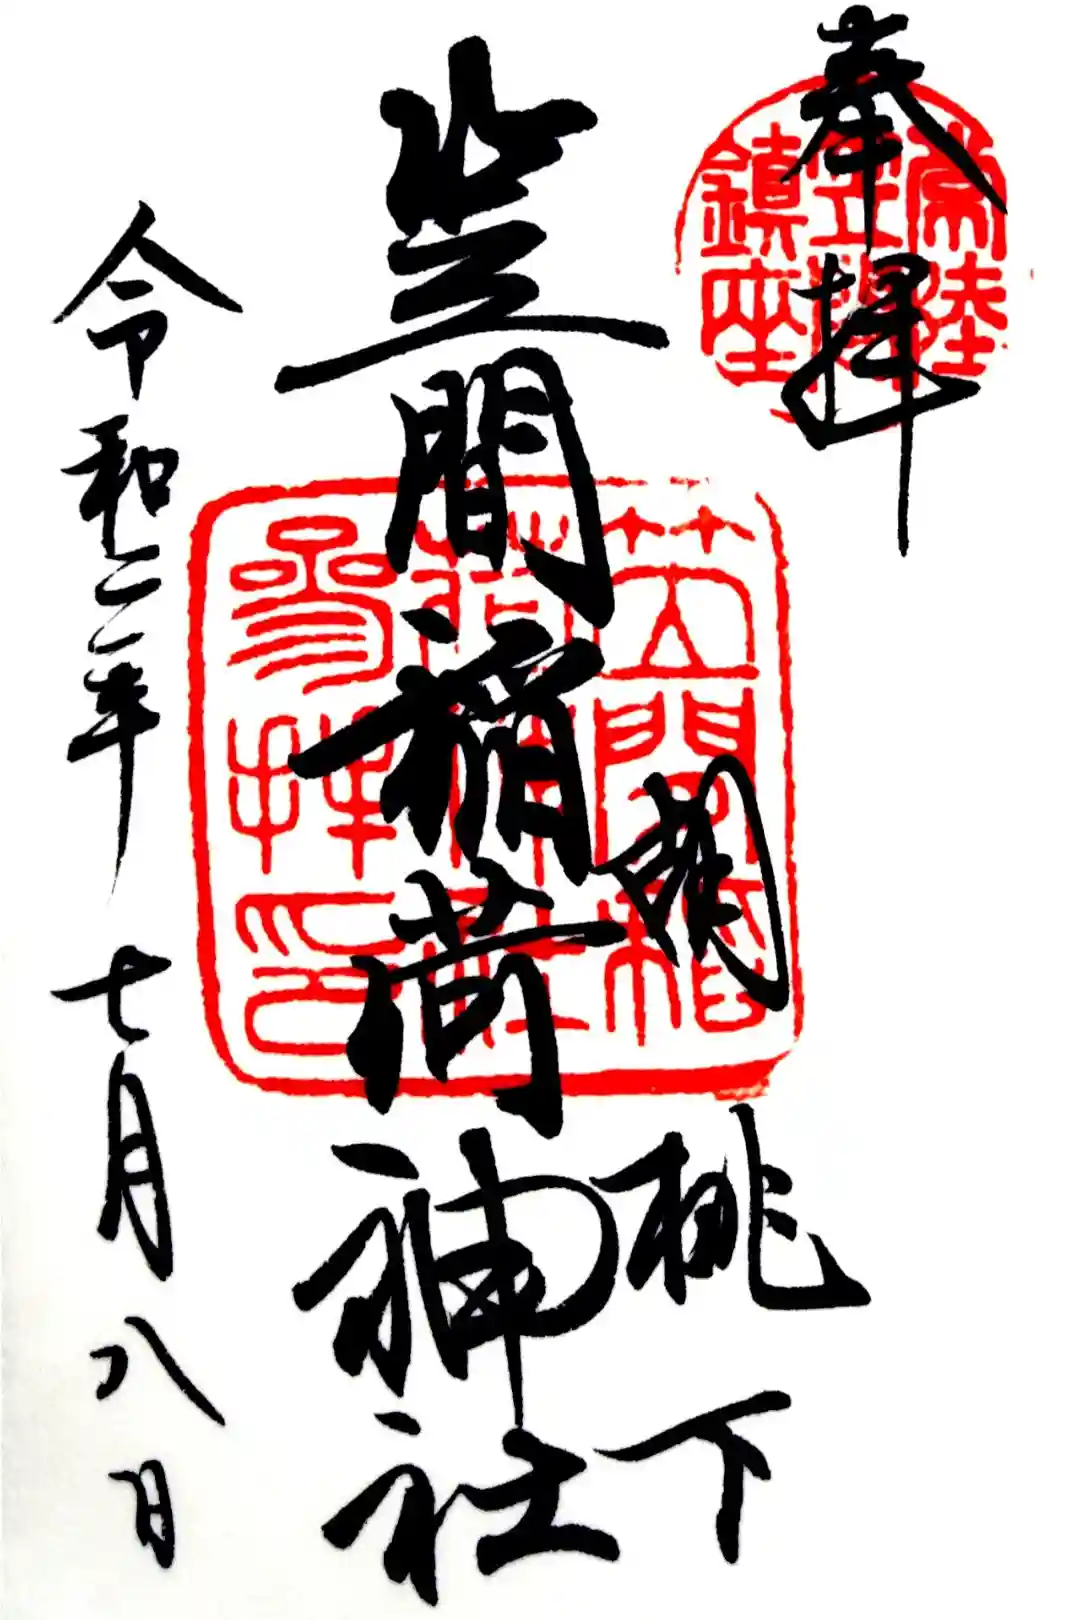 奉拝
常陸
笠間
鎮座
胡桃下
笠間稲荷神社
笠間稲
荷神社
參拝印
令和二年七月八日